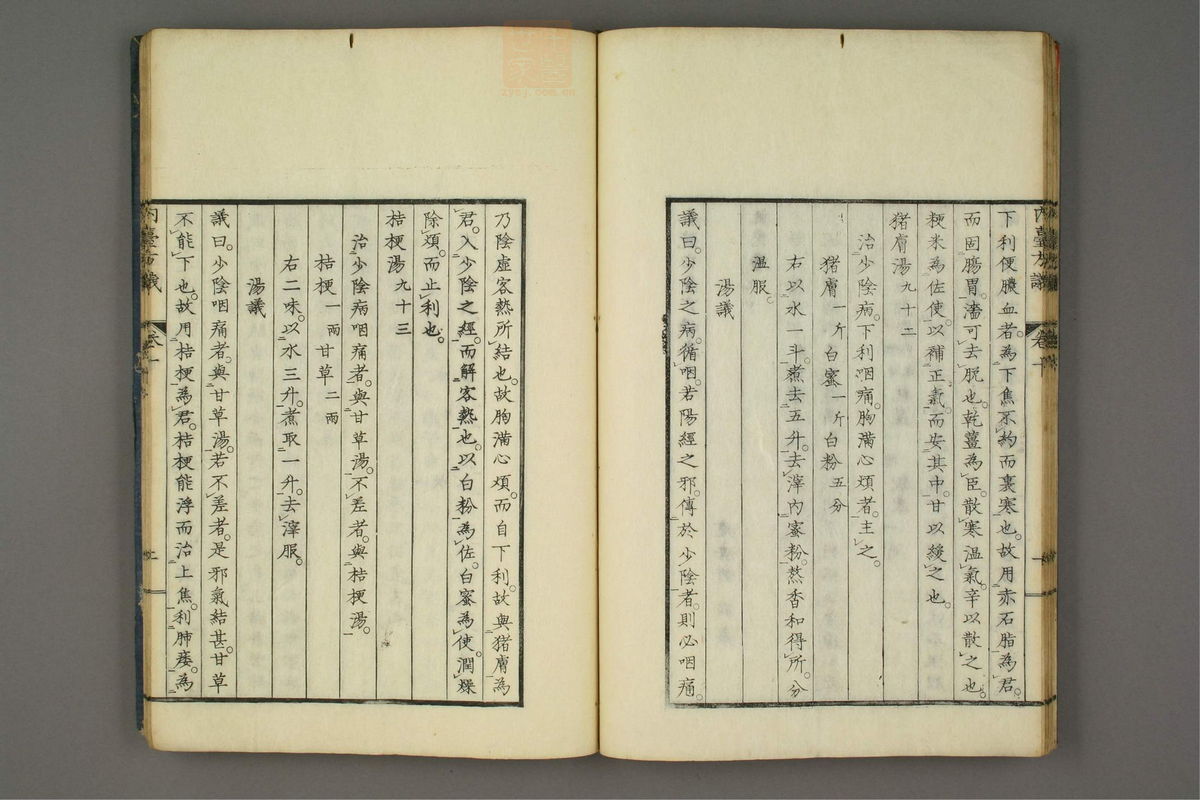 下利便膿血者。為下焦不約而裏寒也。故用赤石脂為君。
而固腸胃。濇可去脫也。乾薑為臣。散寒温氣。辛以散之也。
粳米為佐使。以補正氣。而安其中。甘以緩之也。
猪膚湯九十二
治少陰病。下利咽痛。胸滿心煩者。主之。
猪膚一斤白蜜一斤白粉五分
右以水一斗。煮去五升。去滓內蜜粉。熬香和得所。分
温服。
湯議
議曰。少陰之病。循咽。若陽經之邪。傳於少陰者。則必咽痛。
乃陰虛客熱所結也。故胸滿心煩。而自下利。故與猪膚為
君。入少陰之經。而解客熱也。以白粉為佐。白蜜為使。潤燥
除煩。而止利也。
桔梗湯九十三
治少陰病咽痛者。與甘草湯。不差者。與桔梗湯。
桔梗一兩甘草二兩
右二味。以水三升。煮取一升。去滓服。
湯議
議曰。少陰咽痛者。與甘草湯。若不差者。是邪氣結甚。甘草
不能下也。故用桔梗為君。桔梗能浮而治上焦。利肺痿。為
zysj.com.cn